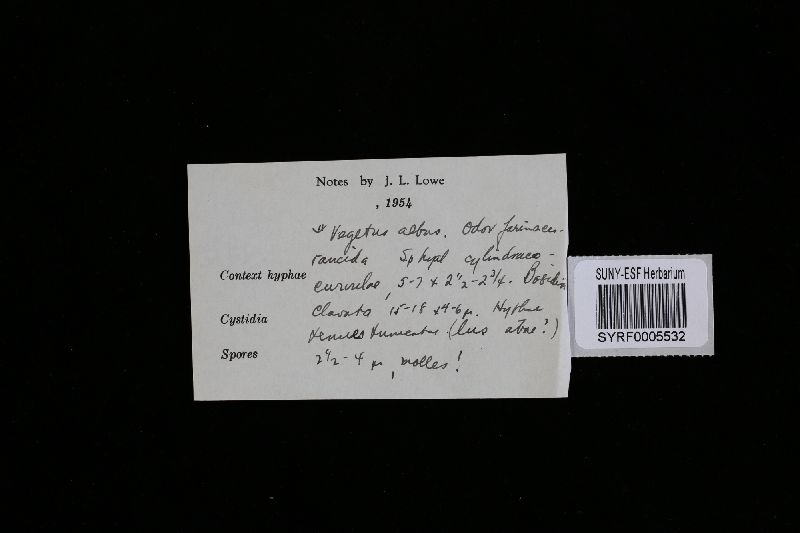 Notes by J. L. Lowe
, 1954
" Vegetus albus. Odor farinaceo-
rancida Sp hyal cylindraceo-
Context hyphae curvulae, 5-7 x 2½-2¾. Basidia
Cystidia Clavata 15-18 x 4-6 µ. Hyphae
tenues tunicatae (lus atae?)
Spores 2½-4 µ, molles!
SUNY-ESF Herbarium
SYRF0005532